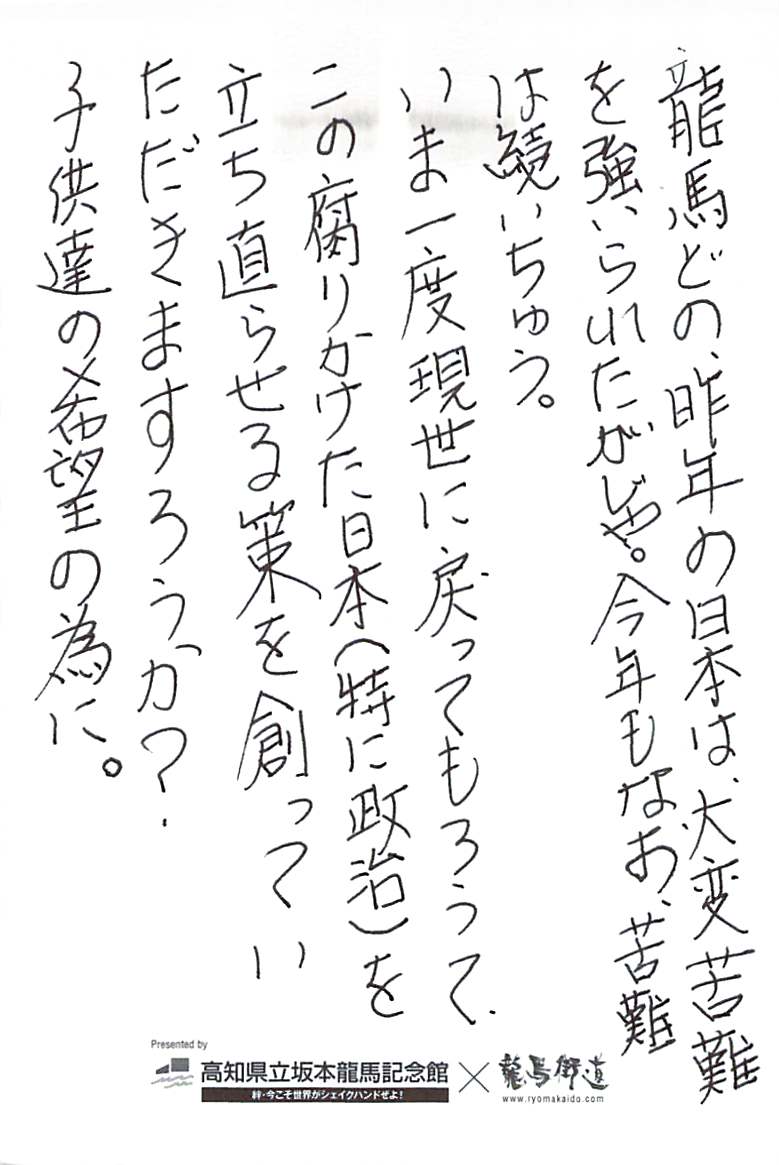 龍馬どの、昨年の日本は、大変苦難
を強いられたがじゃ。今年もなお、苦難
は続いちゅう。
いま一度現世に戻ってもろうて、
この腐りかけた日本(特に政治)を
立ち直らせる策を創ってい
ただきますろうか?
子供達の希望の為に。
Presented by
高知県立坂本龍馬記念館
絆・今こそ世界がシェイクハンドせよ!
×
龍馬街道
www.ryomakaido.com